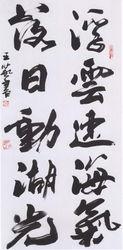 浮雲連海氣
落日動湖光